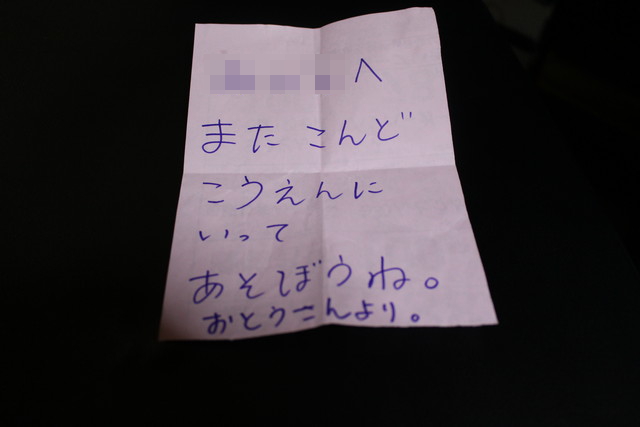 へ
また こんど
こうえんに
いって
あそぼうね。
おとうさんより。